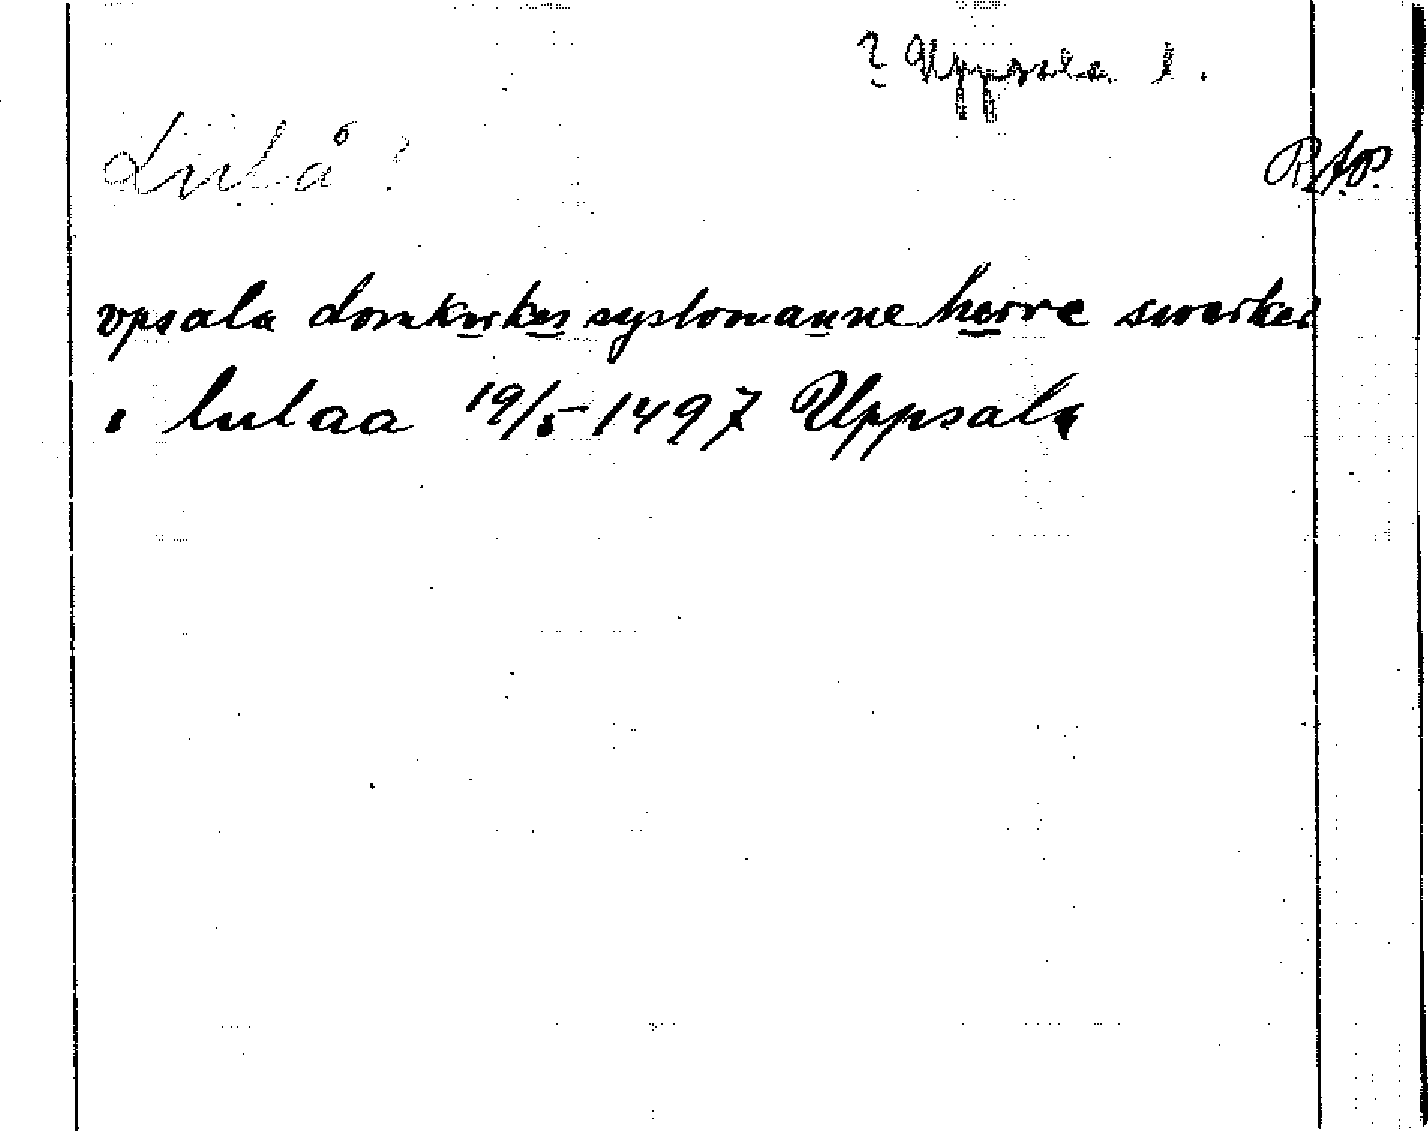 ? Uppsala l.
Lutå ?
RAP.
vpsala domkirkes syslomanne herre swerker
i lutaa 19/5 1497 Uppsala